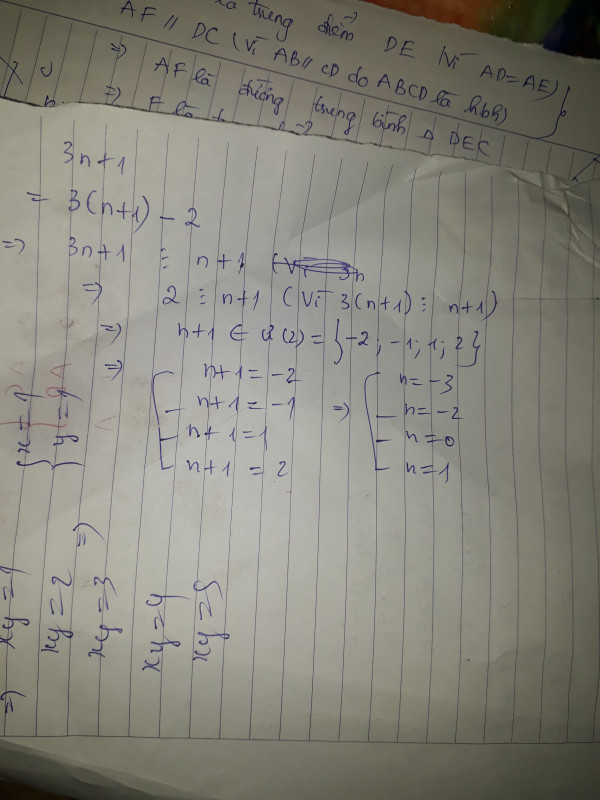 là trung điểm DE (Vì AD=AE)
AF // DC (Vì AB // CD do ABCD là hbh)
=> AF là đường trung bình Δ DEC
=> F là
3n+1
= 3(n+1) - 2
=> 3n+1 ⋮ n+1 (Vì 3n
=> 2 ⋮ n+1 (Vì 3(n+1) ⋮ n+1)
=> n+1 ∈ Ư(2) = {-2; -1; 1; 2}
=>
n+1 = -2
n+1 = -1
n+1 = 1
n+1 = 2
=>
n = -3
n = -2
n = 0
n = 1
{x=1
{y=1
=> xy=1
xy=2 =>
xy=3
xy=4